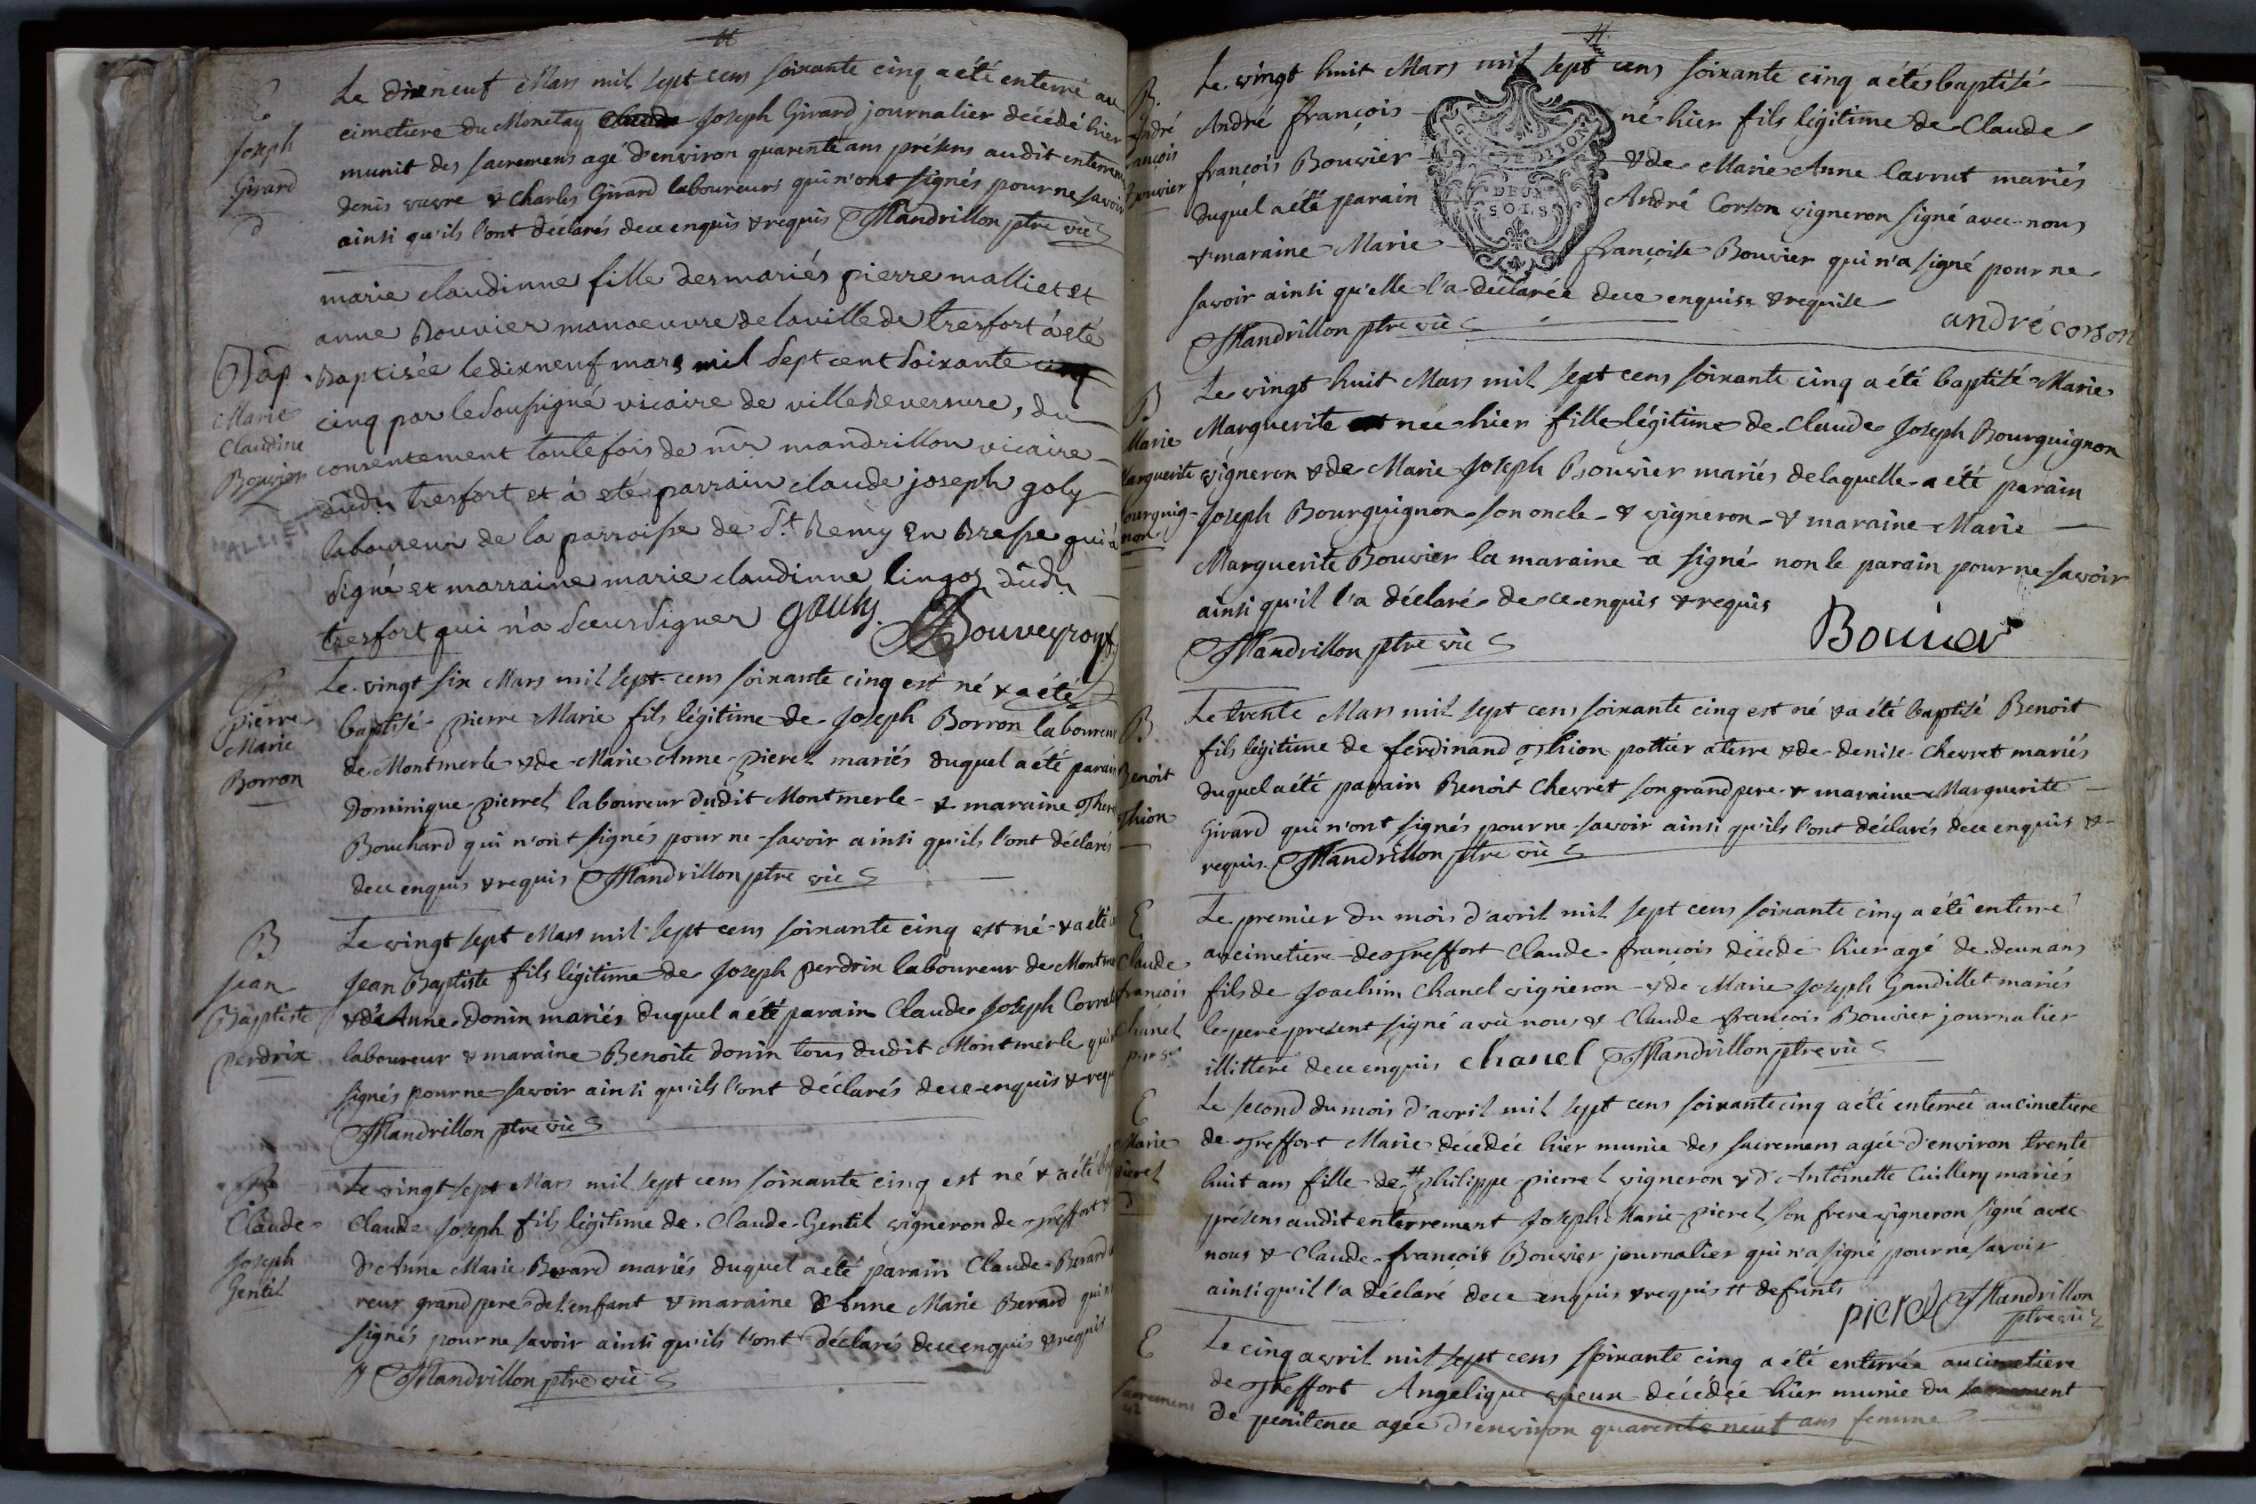 E
Joseph
Girard
D
Le dixneuf Mars mil sept cens soixante cinq a été enterré au
cimetiere du Monetay Joseph Girard journalier décédé hier
munit des sacremens agé d'environ quarente ans présens audit enterrem
denis vuvre & Charles Girard laboureurs qui n'ont signés pour ne savoir
ainsi qu'ils l'ont déclarés de ce enquis & requis Mandrillon ptre vic
Bap
Marie
Claudine
Bouvier
MALLIET
marie claudinne fille des mariés pierre malliet et
anne Bouvier manoeuvre de la ville de tresfort à été
Baptisée le dixneuf mars mil sept cent soixante cinq
cinq par le soussigné vicaire de villereversure, du
consentement toutefois de mr mandrillon vicaire
dudt tresfort et à eté parrain claude joseph goly
laboureur de la parroisse de St Remy en Bresse qui à
signé et marraine marie claudinne lingoz dudt
tresfort qui n'a sceu signer gauly. Bouveyron
B
pierre
Marie
Borron
Le vingt six Mars mil sept cens soixante cinq est né & a été
baptisé pierre Marie fils légitime de Joseph Borron laboureur
de Montmerle & de Marie Anne pieret mariés duquel a été parain
Dominique pierret laboureur dudit Montmerle & maraine
Bouchard qui n'ont signés pour ne savoir ainsi qu'ils l'ont déclarés
de ce enquis & requis Mandrillon ptre vic
B
Jean
Baptiste
perdrix
Le vingt sept Mars mil sept cens soixante cinq est né & a été
Jean Baptiste fils légitime de Joseph perdrix laboureur de Montme
& de Anne Donin mariés duquel a été parain Claude Joseph
laboureur & maraine Benoite Donin tous dudit Montmerle
signés pour ne savoir ainsi qu'ils l'ont déclarés de ce enquis & requ
Mandrillon ptre vic
B
Claude
Joseph
Gentil
Le vingt sept Mars mil sept cens soixante cinq est né & a été
Claude Joseph fils légitime de Claude Gentil vigneron de Treffort &
d'Anne Marie Berard mariés duquel a été parain Claude Berard
reur grand pere de l'enfant & maraine Anne Marie Berard
signés pour ne savoir ainsi qu'ils l'ont déclarés de ce enquis & requis
Mandrillon ptre vic
B.
André
ançois
Bouvier
Le vingt huit Mars mil sept cens soixante cinq a étés baptisé
André françois né hier fils légitime de Claude
françois Bouvier & de Marie Anne Carrut mariés
duquel a été parain André Corson vigneron signé avec nous
& maraine Marie françoise Bouvier qui n'a signé pour ne
savoir ainsi qu'elle l'a déclarée de ce enquise & requise
Mandrillon ptre vic andré corson
DEUX
SOLS
B
Marie
Marguerite
ourguig-
non
Le vingt huit Mars mil sept cens soixante cinq a été baptisé Marie
Marguerite née hier fille légitime de Claude Joseph Bourguignon
vigneron & de Marie Joseph Bouvier mariés de laquelle a été parain
Joseph Bourguignon son oncle & vigneron & maraine Marie
Marguerite Bouvier la maraine a signé non le parain pour ne savoir
ainsi qu'il l'a déclaré de ce enquis & requis
Mandrillon ptre vic Bouier
B
Benoit
thion
Le trente Mars mil sept cens soixante cinq est né & a été baptisé Benoit
fils légitime de ferdinand thion pottier a terre & de denise Chevret mariés
duquel a été parain Benoit Chevret son grand pere & maraine Marguerite
Girard qui n'ont signés pour ne savoir ainsi qu'ils l'ont déclarés de ce enquis &
requis. Mandrillon ptre vic
E
Claude
françois
Chanel
Le premier du mois d'avril mil sept cens soixante cinq a été enterré
au cimetiere de Treffort Claude françois décédé hier agé de deux ans
fils de Joachim Chanel vigneron & de Marie Joseph Gaudillet mariés
le pere present signé avec nous & Claude françois Bouvier journalier
illitteré de ce enquis chanel Mandrillon ptre vic
E
Marie
pieret
D
Le second du mois d'avril mil sept cens soixante cinq a été enterrée au cimetiere
de Treffort Marie décédée hier munie des sacremens agée d'environ trente
huit ans fille de # philippe pierret vigneron & d'Antoinette Cuillery mariés
présens audit enterrement Joseph Marie pieret son frere vigneron signé avec
nous & Claude françois Bouvier journalier qui n'a signé pour ne savoir
ainsi qu'il l'a déclaré de ce enquis & requis # defunts
pieret Mandrillon
ptre vic
E
Le cinq avril mil sept cens soixante cinq a été enterrée au cimetiere
de Treffort Angelique vieux décédée hier munie du sacrement
de penitence agée d'environ quarente neuf ans femme